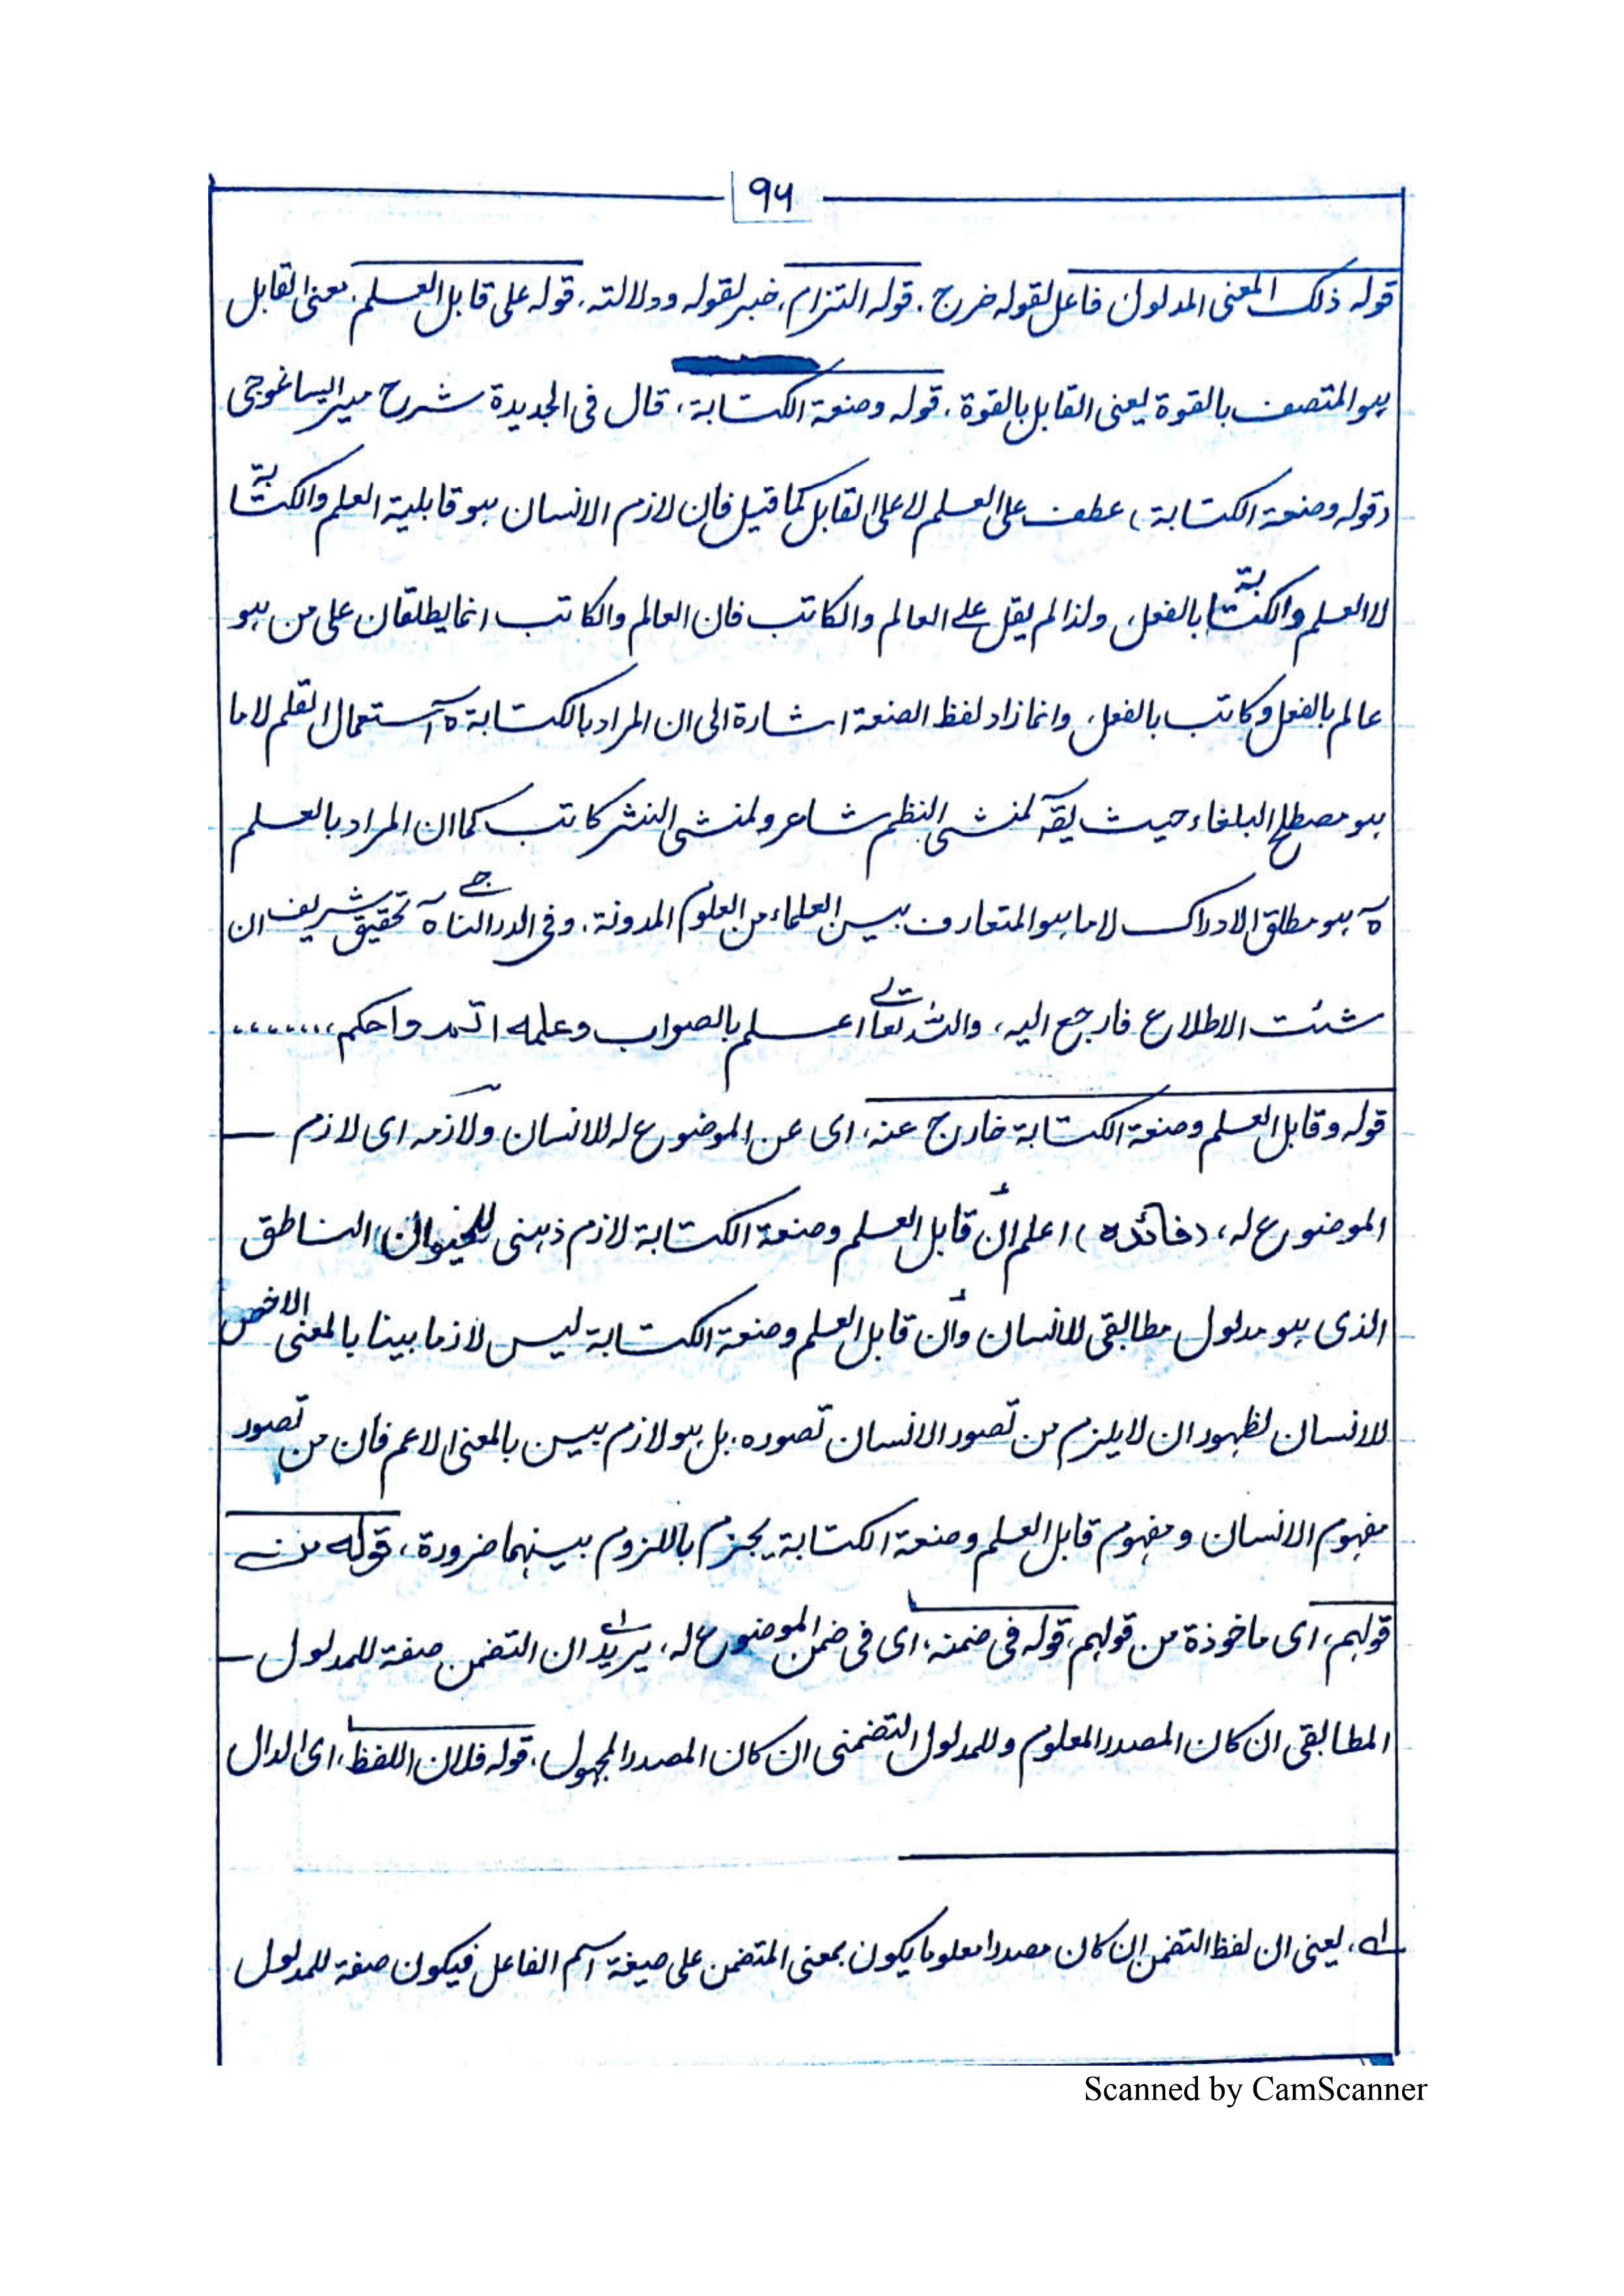 ۹۶
قوله ذلك المعنى المدلول فاعل لقوله خرج. قوله التزام، خبر لقوله ودلالته. قوله على قابل العلم. معنى القابل
هو المتصف بالقوة يعنى القابل بالقوة. قوله وصنعة الكتابة، قال فى الجديدة شرح مير ايساغوجى
وقوله وصنعة الكتابة، عطف على العلم لا على القابل كما قيل فان لازم الانسان هو قابلية العلم والكتابة
لا العلم والكتابة بالفعل، ولذا لم يقل على العالم والكاتب فان العالم والكاتب انما يطلقان على من هو
عالم بالفعل وكاتب بالفعل، وانما زاد لفظ الصنعة اشارة الى ان المراد بالكتابة ه‍آ استعمال القلم لا ما
هو مصطلح البلغاء حيث يقآ لمنشى النظم شاعر ولمنشى النثر كاتب كما ان المراد بالعلم
ه‍آ هو مطلق الادراك لا ما هو المتعارف بين العلماء من العلوم المدونة. وفى الدر الناجى ه‍آ تحقيق شريف ان
شئت الاطلاع فارجع اليه، والله تعالى اعلم بالصواب وعلمه اتم واحكم، ......
قوله وقابل العلم وصنعة الكتابة خارج عنه، اى عن الموضوع له للانسان ولازمه اى لازم —
الموضوع له، (فائده) اعلم أن قابل العلم وصنعة الكتابة لازم ذهنى للحيوان الناطق
الذى هو مدلول مطابقى للانسان وأن قابل العلم وصنعة الكتابة ليس لازما بينا بالمعنى الاخص
للانسان لظهور ان لا يلزم من تصور الانسان تصوره. بل هو لازم بين بالمعنى الاعم فان من تصور
مفهوم الانسان ومفهوم قابل العلم وصنعة الكتابة يجزم باللزوم بينهما ضرورة، قوله من
قولهم، اى ماخوذة من قولهم، قوله فى ضمنه، اى فى ضمن الموضوع له، يريد ان التضمن صفة للمدلول —
المطابقى ان كان المصدر المعلوم وللمدلول التضمنى ان كان المصدر المجهول. قوله فلان اللفظ، اى الدال
له، يعنى ان لفظ التضمن ان كان مصدرا معلوما يكون بمعنى المتضمن على صيغة اسم الفاعل فيكون صفة للمدلول
Scanned by CamScanner